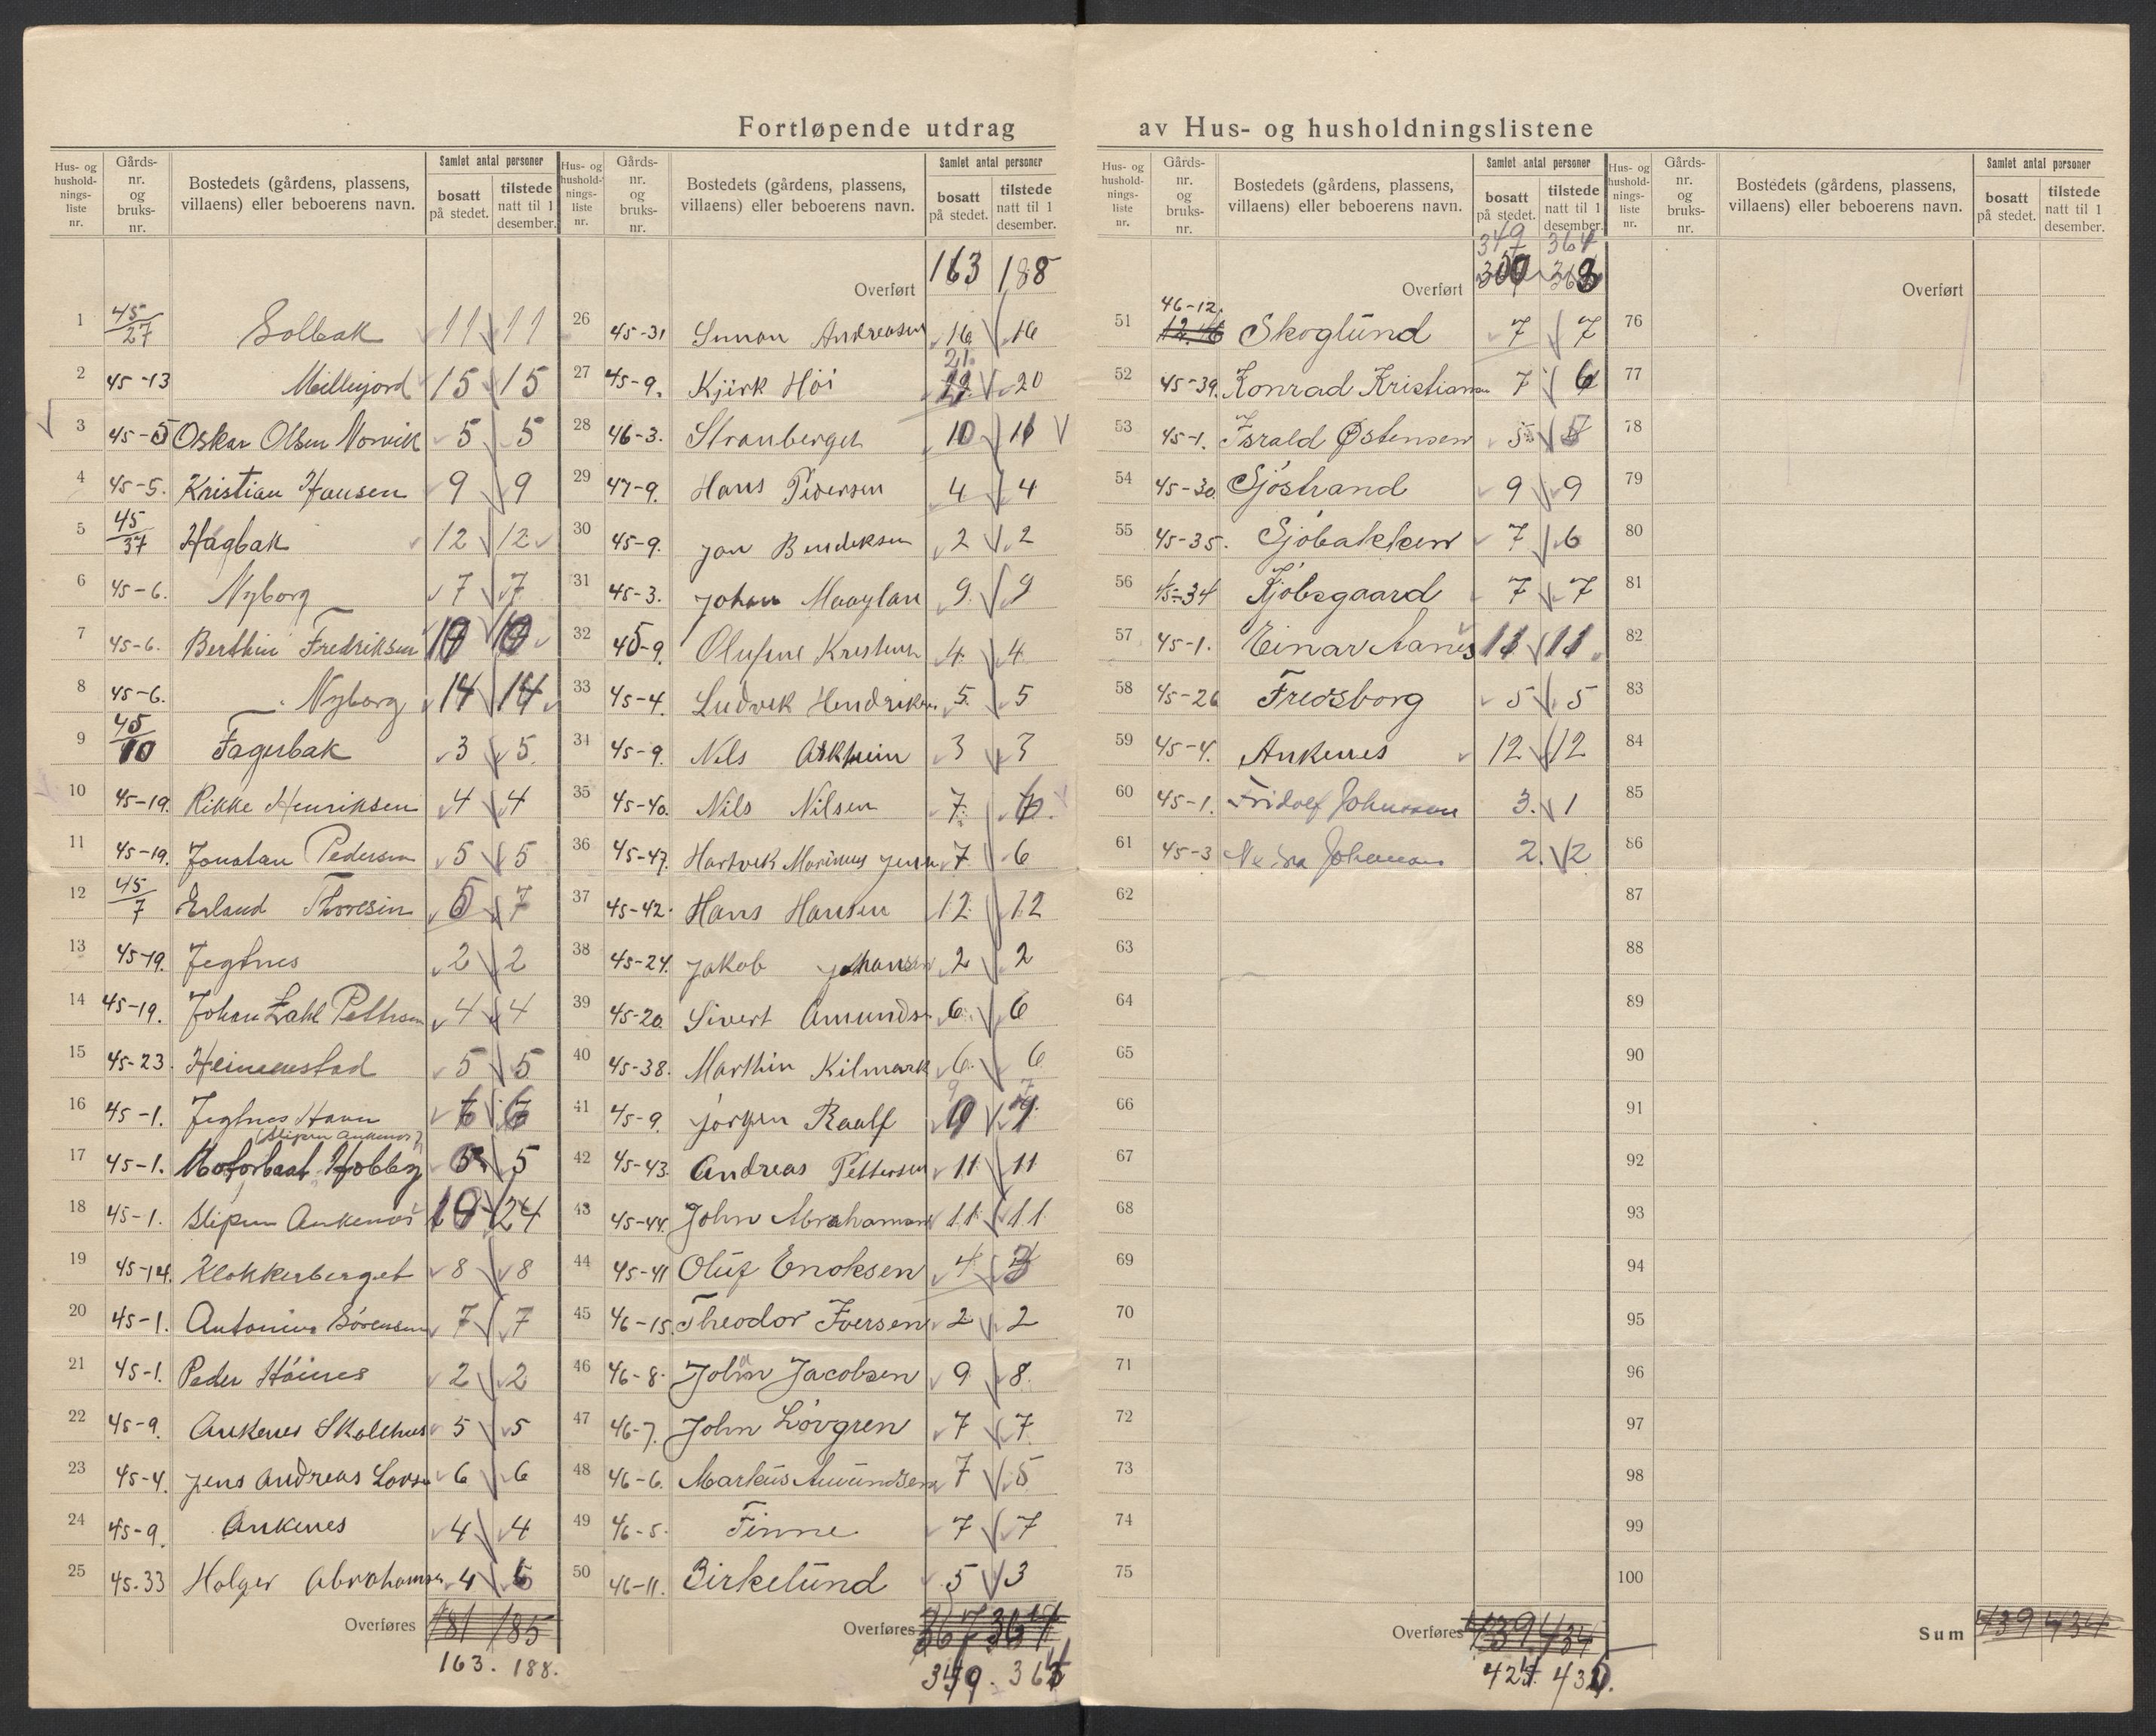 Fortløpende utdrag av Hus- og husholdningslistene
Hus- og hushold- nings- liste nr. | Gårds- nr. og bruks- nr. | Bostedets (gårdens, plassens, villaens) eller beboerens navn. | Samlet antal personer | bosatt på stedet. | tilstede natt til 1 desember.
1 45/27 Solbak 11 11
2 45-13 Millejord 15 15
3 45-5 Oskar Olsen Norvik 5 5
4 45-5. Kristian Hansen 9 9
5 45/37 Hagbak 12 12
6 45-6. Nyborg 7 7
7 45-6. Berthin Fredriksen 10 10
8 45-6. Nyborg 14 14
9 45/10 Fagerbak 3 5
10 45-19. Rikke Henriksen 4 4
11 45-19. Jonatan Pedersen 5 5
12 45/7 Erland Thoresin 5 7
13 45-19. Jegtnes 2 2
14 45-19. Johan Zahl Pettersen 4 4
15 45-23. Heimenstad 5 5
16 45-1. Jegtnes Havn 6 6
17 45-1. Motorbaat Hobby (Slipen Ankenes) 5 5
18 45-1. Slipen Ankenes 24
19 45-14. Klokkerberget 8 8
20 45-1. Antonius Sörensen 7 7
21 45-1. Peder Höines 2 2
22 45-9. Ankenes Skolehus 5 5
23 45-4. Jens Andreas Lovse 6 6
24 45-9. Ankenes 4 4
25 45-33 Holger Abrahamsen 4 6
Overføres 181 185
163. 188.
Hus- og hushold- nings- liste nr. | Gårds- nr. og bruks- nr. | Bostedets (gårdens, plassens, villaens) eller beboerens navn. | Samlet antal personer | bosatt på stedet. | tilstede natt til 1 desember.
Overført 163 188
26 45-31 Simon Andreasen 16 16
27 45-9. Kjirk Höi 21 20
28 46-3. Stranberget 10 11
29 47-9. Hans Pedersen 4 4
30 45-9. Jan Bendeksen 2 2
31 45-3. Johan Maaylan 9 9
32 45-9 Olufine Kristensen 4 4
33 45-4. Ludvek Hendriksen 5 5
34 45-9. Nils Askheim 3 3
35 45-40. Nils Nilsen 7 6
36 45-47. Hartvek Marinius Jensen 7 6
37 45-42. Hans Hansen 12 12
38 45-24. Jakob Johansen 2 2
39 45-20. Sivert Amunds 6 6
40 45-38. Marthin Kilmark 6 6
41 45-9. Jörgen Raalf 9 7
42 45-43. Andreas Pettersen 11 11
43 45-44. John Abrahamsen 11 11
44 45-41 Oluf Enoksen 4 3
45 46-15. Theodor Iversen 2 2
46 46-8. Johan Jacobsen 9 8
47 46-7. John Lövgren 7 7
48 46-6. Markus Amundsen 7 5
49 46-5. Finne 7 7
50 46-11. Birkelund 5 3
Overføres 367 364
349. 364
Hus- og hushold- nings- liste nr. | Gårds- nr. og bruks- nr. | Bostedets (gårdens, plassens, villaens) eller beboerens navn. | Samlet antal personer | bosatt på stedet. | tilstede natt til 1 desember.
349 364
Overført 368
46-12.
51 12.46 Skoglund 7 7
52 45-39. Konrad Kristiansen 7 6
53 45-1. Israld Østensen 5
54 45-30. Sjöstrand 9 9
55 45-35. Sjöbakken 7 6
56 45-34 Kjöbsgaard 7 7
57 45-1. Einar Aanes 11 11
58 45-26 Fredsborg 5 5
59 45-4. Ankenes 12 12
60 45-1. Fridolf Johansen 3. 1
61 45-3 Johansen 2. 2
62
63
64
65
66
67
68
69
70
71
72
73
74
75
Overføres 439 434
424. 430.
Hus- og hushold- nings- liste nr. | Gårds- nr. og bruks- nr. | Bostedets (gårdens, plassens, villaens) eller beboerens navn. | Samlet antal personer | bosatt på stedet. | tilstede natt til 1 desember.
Overført
76
77
78
79
80
81
82
83
84
85
86
87
88
89
90
91
92
93
94
95
96
97
98
99
100
Sum 439 434